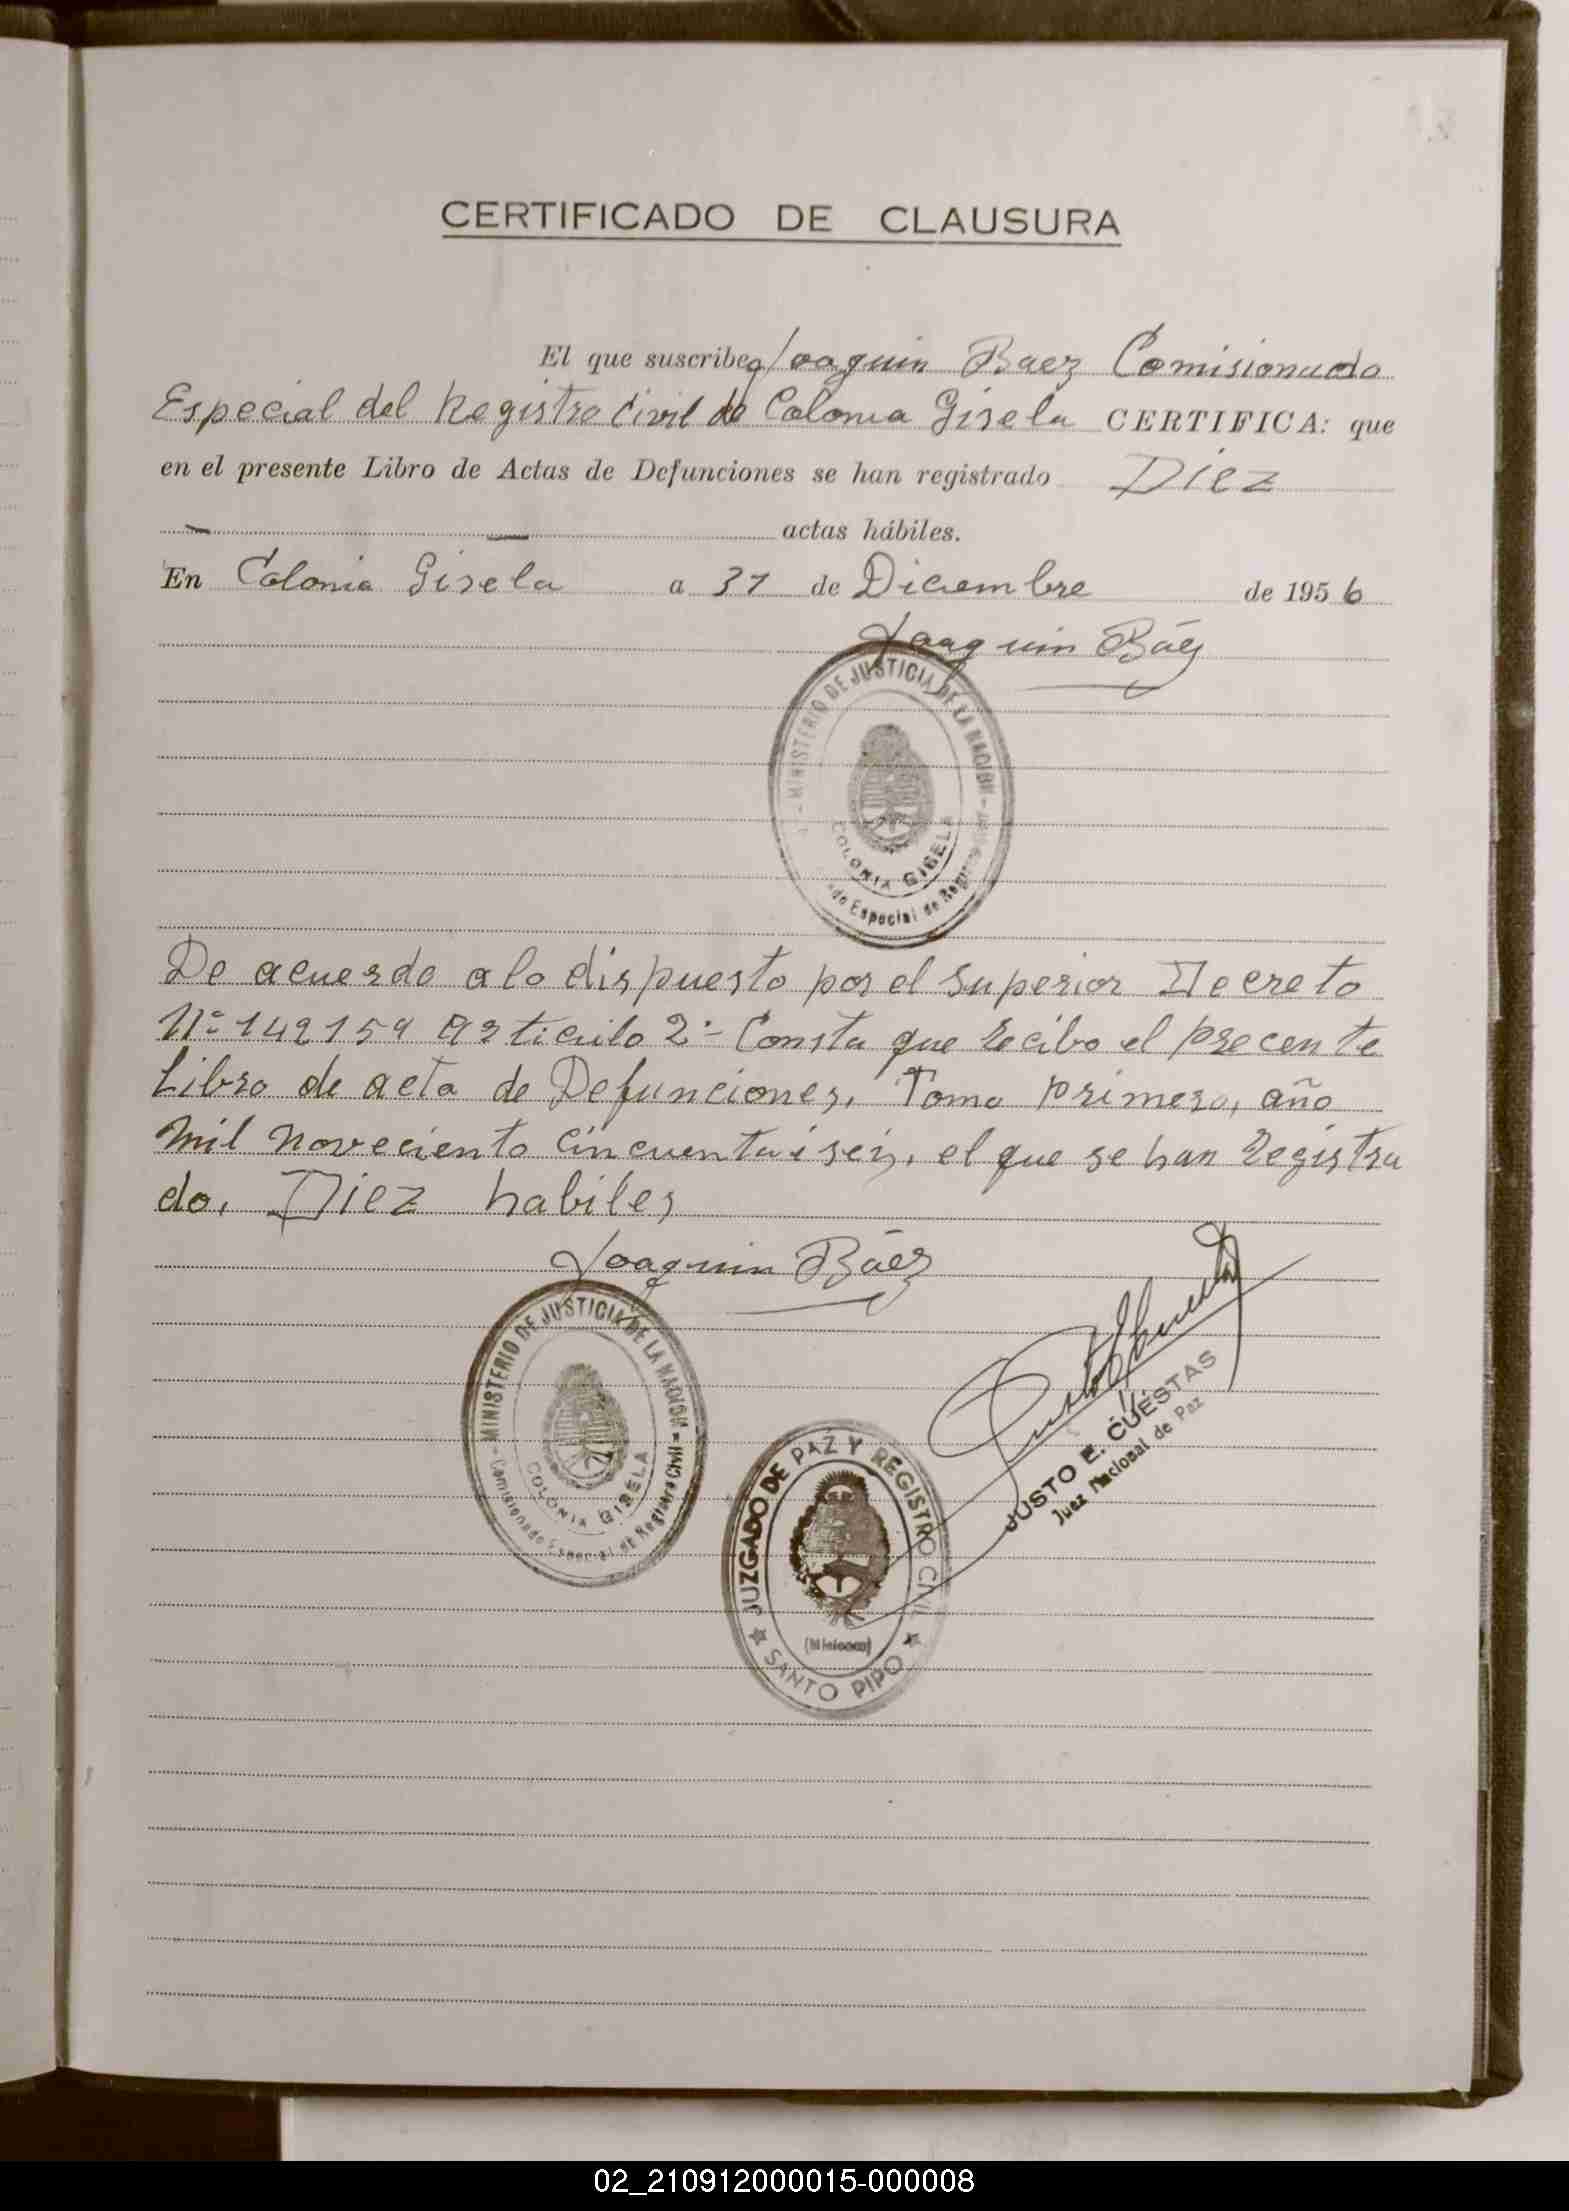 CERTIFICADO DE CLAUSURA
El que suscribe Joaquin Baez Comisionado
Especial del Registro Civil de Colonia Gisela CERTIFICA: que
en el presente Libro de Actas de Defunciones se han registrado Diez
— — actas hábiles.
En Colonia Gisela a 31 de Diciembre de 1956
Joaquin Báez
- MINISTERIO DE JUSTICIA DE LA NACION -
COLONIA GISELA
Especial de Registro
De acuerdo a lo dispuesto por el Superior Decreto
Nº 142159 articulo 2º- Consta que recibo el precente
Libro de acta de Defunciones, Tomo primero, año
mil noveciento cincuenta i seis, el que se han registra
do, Diez habiles
Joaquin Báez
- MINISTERIO DE JUSTICIA DE LA NACION -
COLONIA GISELA
Comisionado Especial de Registro Civil
JUSTO E. CUESTAS
Juez Nacional de Paz
JUZGADO DE PAZ Y REGISTRO CIVIL
(Misiones)
★ SANTO PIPO ★
02_210912000015-000008